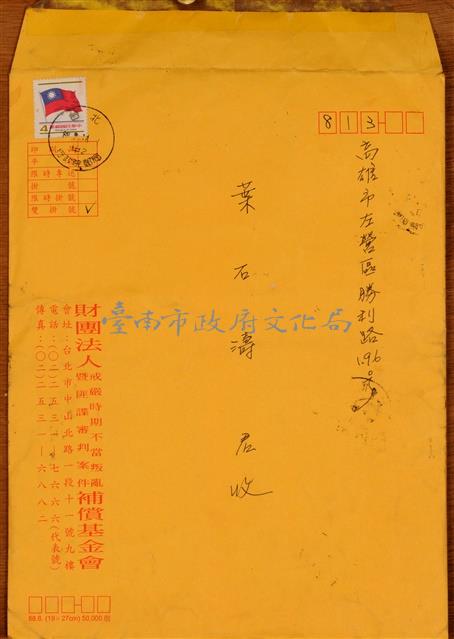 813
高雄市左營區勝利路196號
葉石濤 君收
臺南市政府文化局
北
4
印刷
平
限時專送
掛號
限時掛號
雙掛號 ✓
財團法人戒嚴時期不當叛亂暨匪諜審判案件補償基金會
會址：台北市中山北路一段十一號九樓
電話：(○二)二五三一─七六六六(代表號)
傳真：(○二)二五三一─六八八二
88.6. (19×27cm) 50,000個